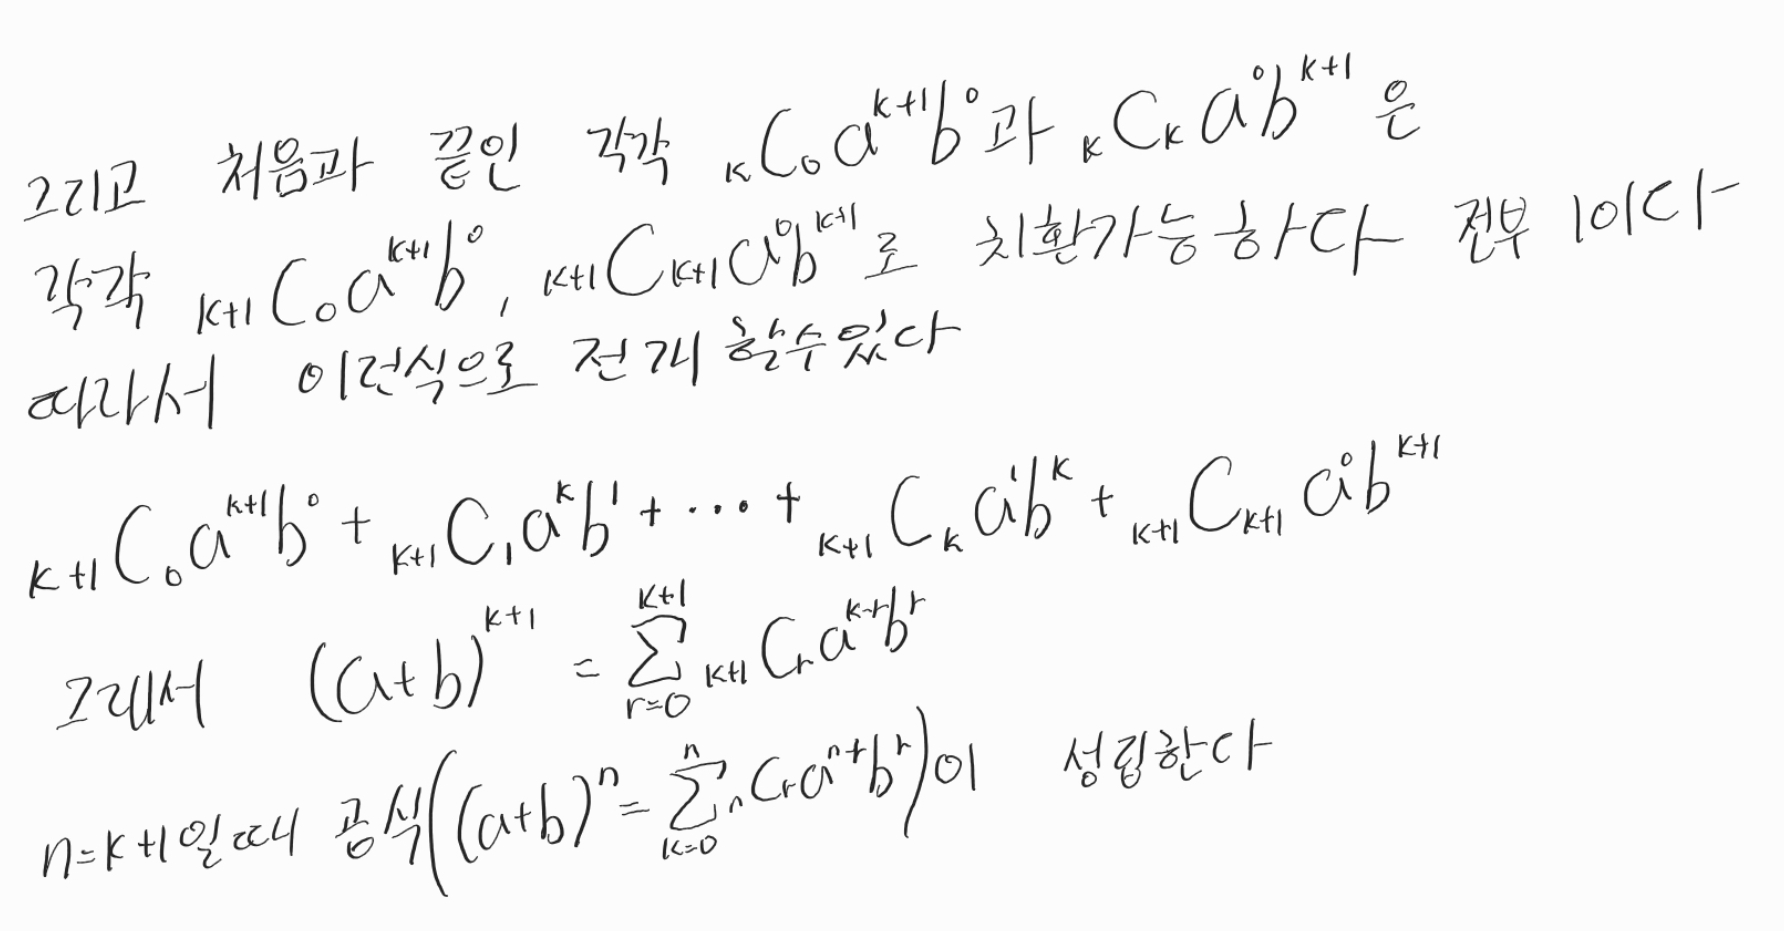 그리고 처음과 끝인 각각 ₖC₀aᵏ⁺¹b⁰과 ₖCₖa⁰bᵏ⁺¹은
각각 ₖ₊₁C₀aᵏ⁺¹b⁰, ₖ₊₁Cₖ₊₁a⁰bᵏ⁺¹로 치환가능하다 전부 1이다
따라서 이런식으로 전개 할수있다
ₖ₊₁C₀aᵏ⁺¹b⁰ + ₖ₊₁C₁aᵏb¹ + ⋯ + ₖ₊₁Cₖa¹bᵏ + ₖ₊₁Cₖ₊₁a⁰bᵏ⁺¹
그래서 (a+b)ᵏ⁺¹ = ∑_{r=0}^{k+1} ₖ₊₁Cᵣaᵏ⁻ʳbʳ
n=k+1일때 공식((a+b)ⁿ = ∑_{k=0}^{n} ₙCᵣaⁿ⁻ʳbʳ)이 성립한다